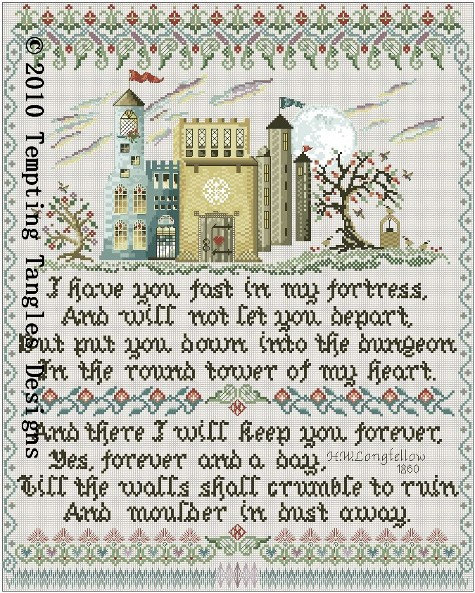 © 2010 Tempting Tangles Designs
I have you fast in my fortress,
And will not let you depart,
But put you down into the dungeon
In the round tower of my heart.
And there I will keep you forever,
Yes, forever and a day,
Till the walls shall crumble to ruin
And moulder in dust away.
H.W.Longfellow
1860